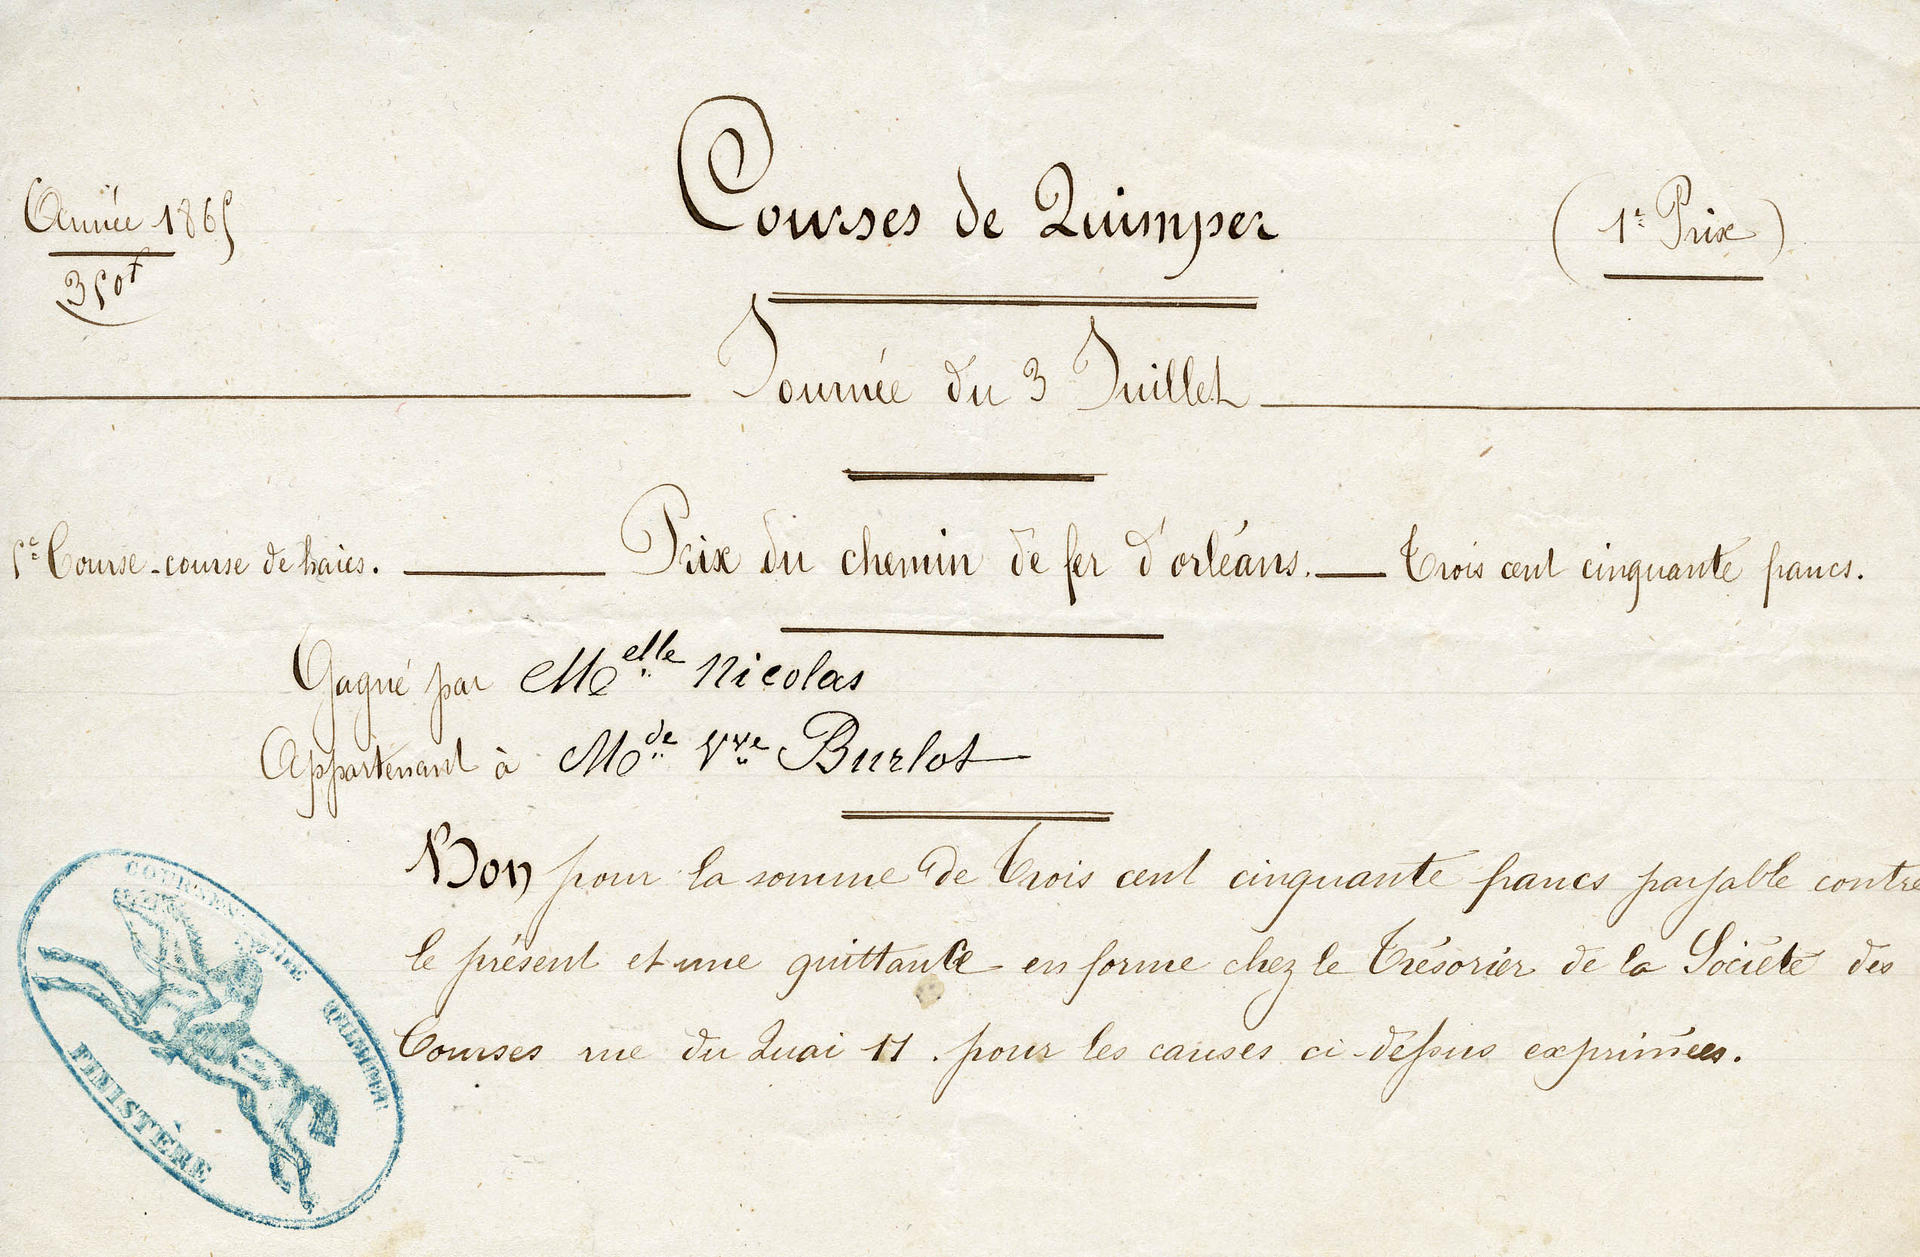 Année 1865
350f
Courses de Quimper
(1r Prix)
Journée du 3 Juillet
5e Course - course de haies. — Prix du chemin de fer d'orléans. — Trois cent cinquante francs.
Gagné par Melle Nicolas
Appartenant à Mde Vve Burlot
Bon pour la somme de Trois cent cinquante francs payable contre
le présent et une quittance en forme chez le Trésorier de la Société des
Courses rue du Quai 11. pour les causes ci-dessus exprimées.
COURSES
QUIMPER
FINISTÈRE